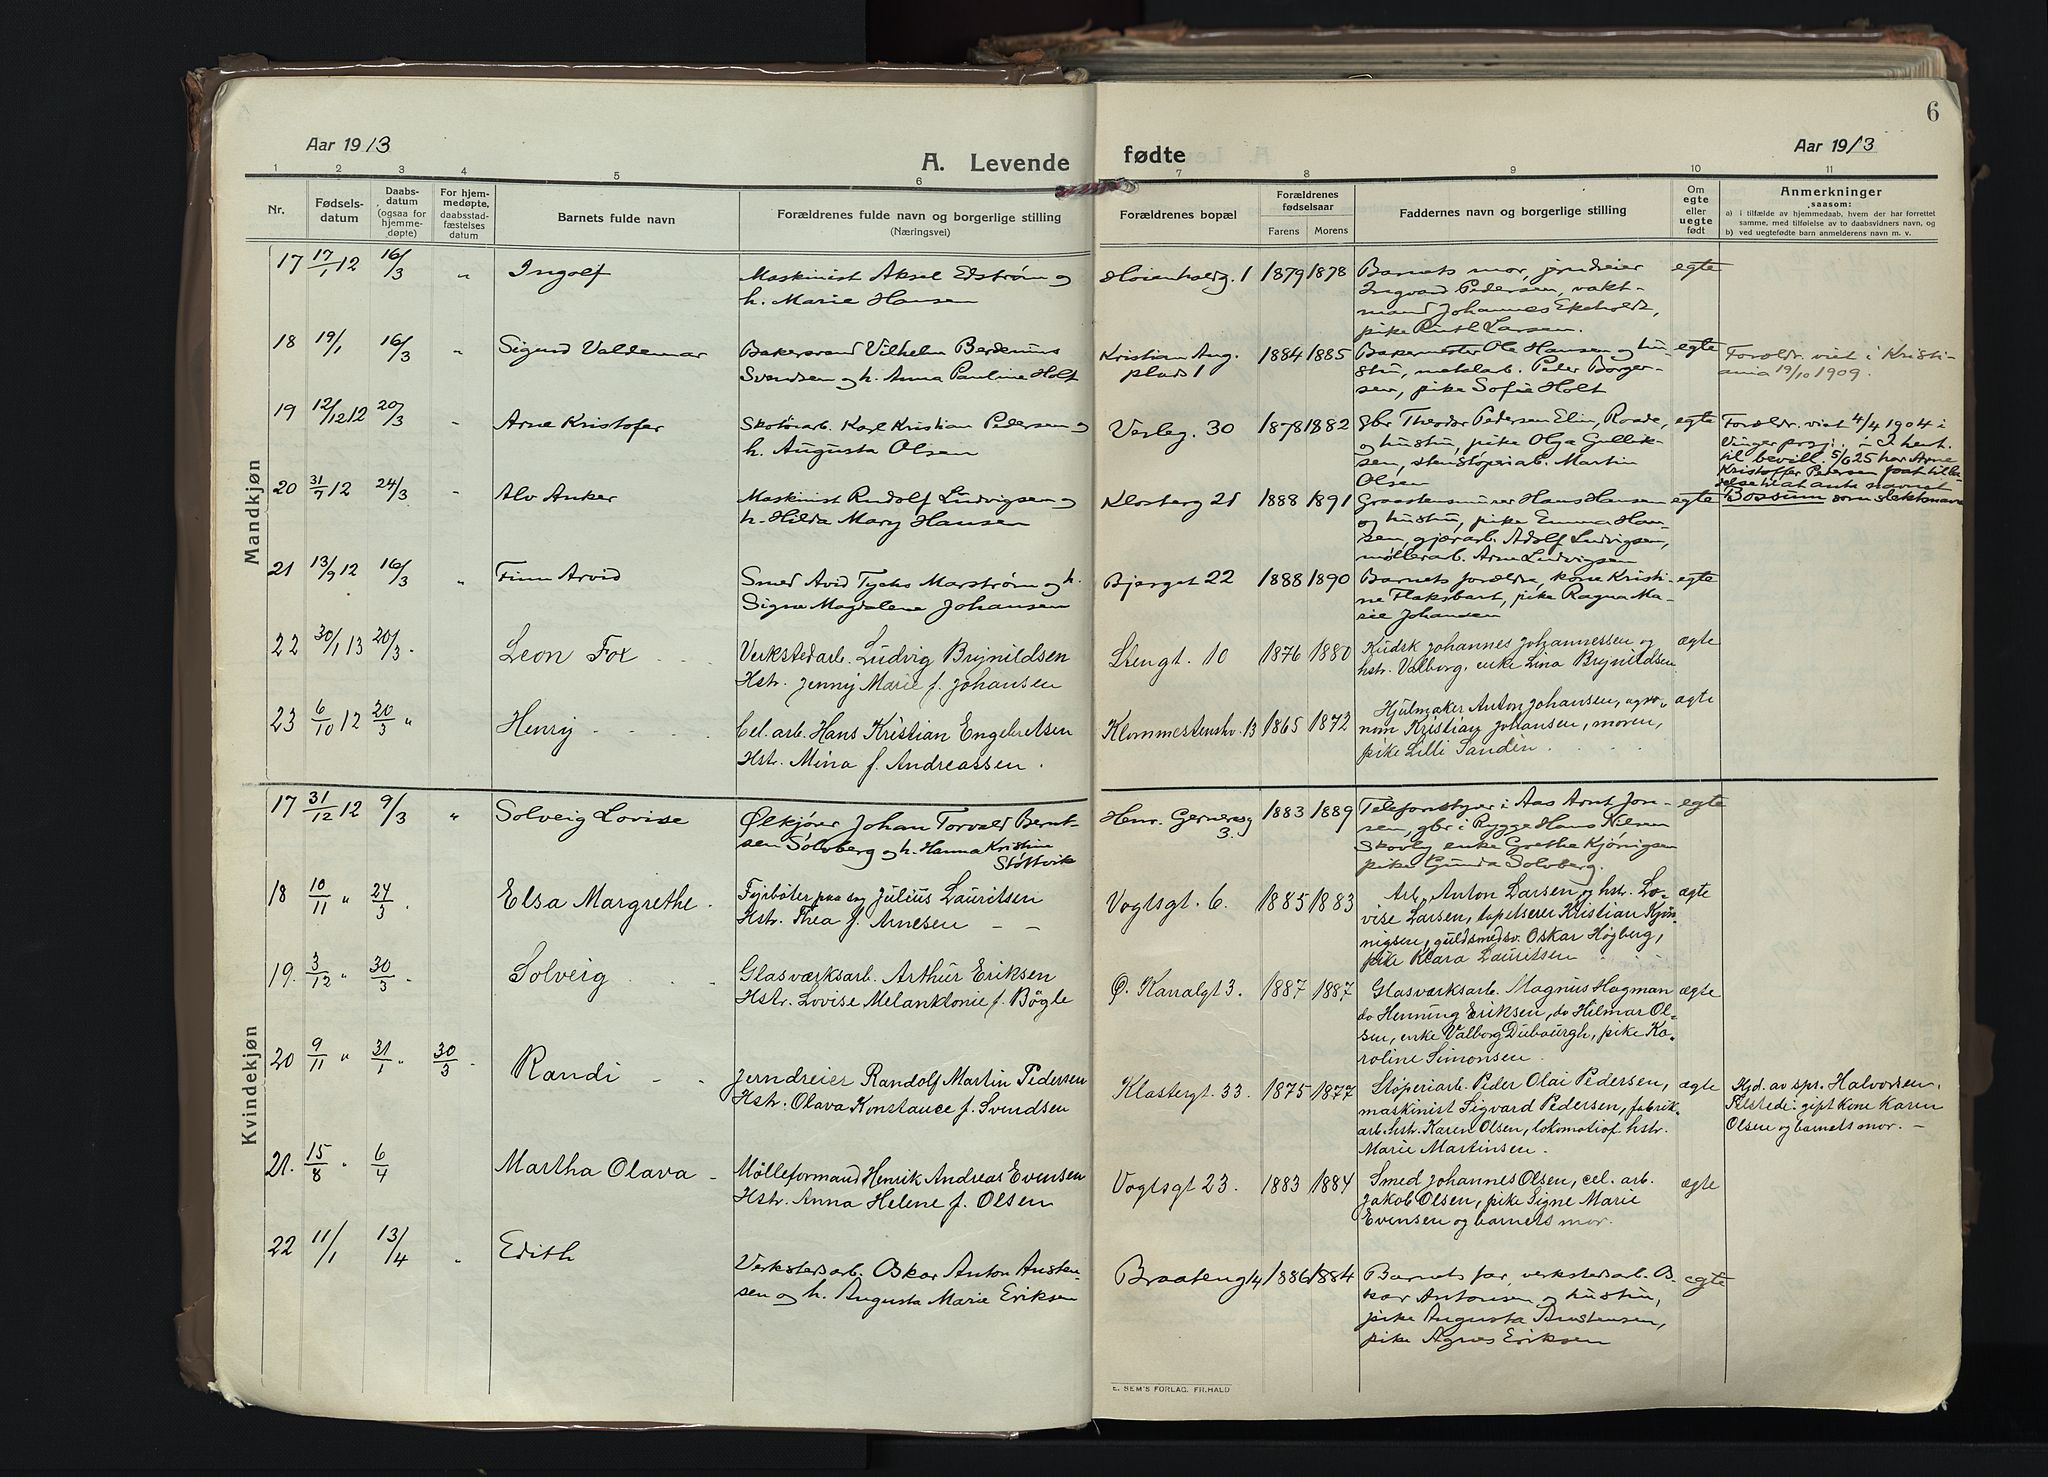 6
Aar 1913
A. Levende
fødte
Aar 1913
1 2 3 4 5 6 7 8 9 10 11
Nr.
Fødsels-
datum
Daabs-
datum
(ogsaa for
hjemme-
døpte)
For hjem-
medøpte,
daabsstad-
fæstelses
datum
Barnets fulde navn
Forældrenes fulde navn og borgerlige stilling
(Næringsvei)
Forældrenes bopæl
Forældrenes
fødselsaar
Farens Morens
Faddernes navn og borgerlige stilling
Om
egte
eller
uegte
født
Anmerkninger
saasom:
a) i tilfælde av hjemmedaab, hvem der har forrettet
samme, med tilføielse av to daabsvidners navn, og
b) ved uegtefødte barn anmelderens navn m. v.
Mandkjøn
17 17/1 12 16/3 " Ingolf
Maskinist Aksel Edstrøm og
h. Marie Hansen
1 1879 1878
Barnets mor, jerndreier
Ingvard Pedersen, vakt-
mand Johannes Ekeholdt,
pike Ruth Larsen.
egte
18 19/1 16/3 " Sigurd Valdemar
Bakersvend Vilhelm Berdenius
Svendsen og h. Anna Pauline Holt
Kristian Aug.
plads 1
1884 1885
Bakermester Ole Hansen og hu-
stru, metalarb. Peder Borger-
sen, pike Sofie Holt
egte
Forældr. viet i Kristi-
ania 19/10 1909.
19 12/12 12 20/3 " Arne Kristofer
Skotøiarb. Karl Kristian Pedersen og
h. Augusta Olsen
Verleg. 30
1878 1882
gbr Theodor Pedersen Elin, Raade,
og hustru, pike Olga Gullik-
sen, stenstøperiarb. Martin
Olsen
egte
Forældr. viet 4/4 1904 i
Vinger prgj. - I hent.
til bevill. 5/6 25 har Arne
Kristoffer Petersen faat tilla-
delse til at anta navnet
Bossum som slektsnavn
20 31/7 12 24/3 " Alv Anker
Maskinist Rudolf Ludvigsen og
h. Hilda Mary Hansen
Klosterg 21
1888 1891
Graastensmurer Hans Hansen
og hustru, pike Emma Han-
sen, gjærarb. Adolf Ludvigsen,
møllerarb. Arne Ludvigsen
egte
21 13/9 12 16/3 " Finn Arvid
Smed Avid Tycho Marstrøm og h.
Signe Magdalene Johansen
Bjerget 22
1888 1890
Barnets forældre, kone Kristi-
ne Flaksbart, pike Ragna Ma-
rie Johansen
egte
22 30/1 13 20/3 Leon Fox
Verkstedarb. Ludvig Brynildsen
Hstr. Jenny Marie f. Johansen
Stengt. 10
1876 1880
Kudsk Johannes Johannessen og
hstr. Valborg, enke Lina Brynildsen
ægte
23 6/10 12 20/3 " Henry
Cel. arb. Hans Kristian Engebretsen
Hstr. Mina f. Andreassen.
Klommestenshv. 13
1865 1872
Hjulmaker Anton Johansen, agro-
nom Kristian Johansen, moren,
pike Lilli Sandén.
ægte
Kvindekjøn
17 31/12 12 9/3 " Solveig Lovise
Ølkjører Johan Torvald Bernt-
sen Solberg og h. Hanna Kristine
Støttvik
Henr. Gerneresg
3.
1883 1889
Telefonstyrer i Aas Arnt Jon-
sen, gbr i Rygge Hans Nilsen
Skovly enke Grethe Kjønigsen
pike Gunda Solberg.
egte
18 10/11 " 24/3 . Elsa Margrethe.
Fyrbøter paa sag Julius Lauritsen
Hstr. Thea f. Arnesen
Vogtsgt. 6.
1885 1883
Arb. Anton Larsen og hstr. Lo-
vise Larsen, tapetserer Kristian Kjøn-
nigsen, guldsmedsv. Oskar Høgberg,
pike Klara Lauritsen
ægte
19. 3/12 " 30/3 . Solveig
Glasværksarb. Arthur Eriksen
Hstr. Lovise Melanktonie f. Bögle
Ø. Kanalgt 3.
1887 1887
Glasværksarb. Magnus Hagman
do Henning Eriksen, do Hilmar Ol-
sen, enke Valborg Dubourgh, pike Ka-
roline Simonsen.
ægte
20 9/11 " 31/1 " 30/3 . Randi
Jerndreier Randolf Martin Pedersen
Hstr. Olava Konstance f. Svendsen
Klostergt. 33.
1875 1877
Støperiarb. Peder Olai Pedersen,
maskinist Sigvard Pedersen, fabrik-
arb. hstr. Karen Olsen, lokomotivf. hstr.
Marie Martinsen.
ægte
Hjd. av spr. Halvorsen.
Tilstede: gift kone Karen
Olsen og barnets mor. -
21. 15/8 " 6/4 Martha Olava
Mølleformand Henrik Andreas Evensen
Hstr. Anna Helene f. Olsen
Vogtsgt 23.
1883 1884
Smed Johannes Olsen, cel. arb.
Jakob Olsen, pike Signe Marie
Evensen og barnets mor.
ægte
22 11/1 13/4 " Edith
Verkstedsarb. Oskar Anton Austen-
sen og h. Augusta Marie Eriksen
Braateng 14
1886 1884
Barnets far, verkstedsarb. Os-
kar Antonsen og hustru,
pike Augusta Austensen,
pike Agnes Eriksen
egte
E. SEM'S FORLAG, FR.HALD